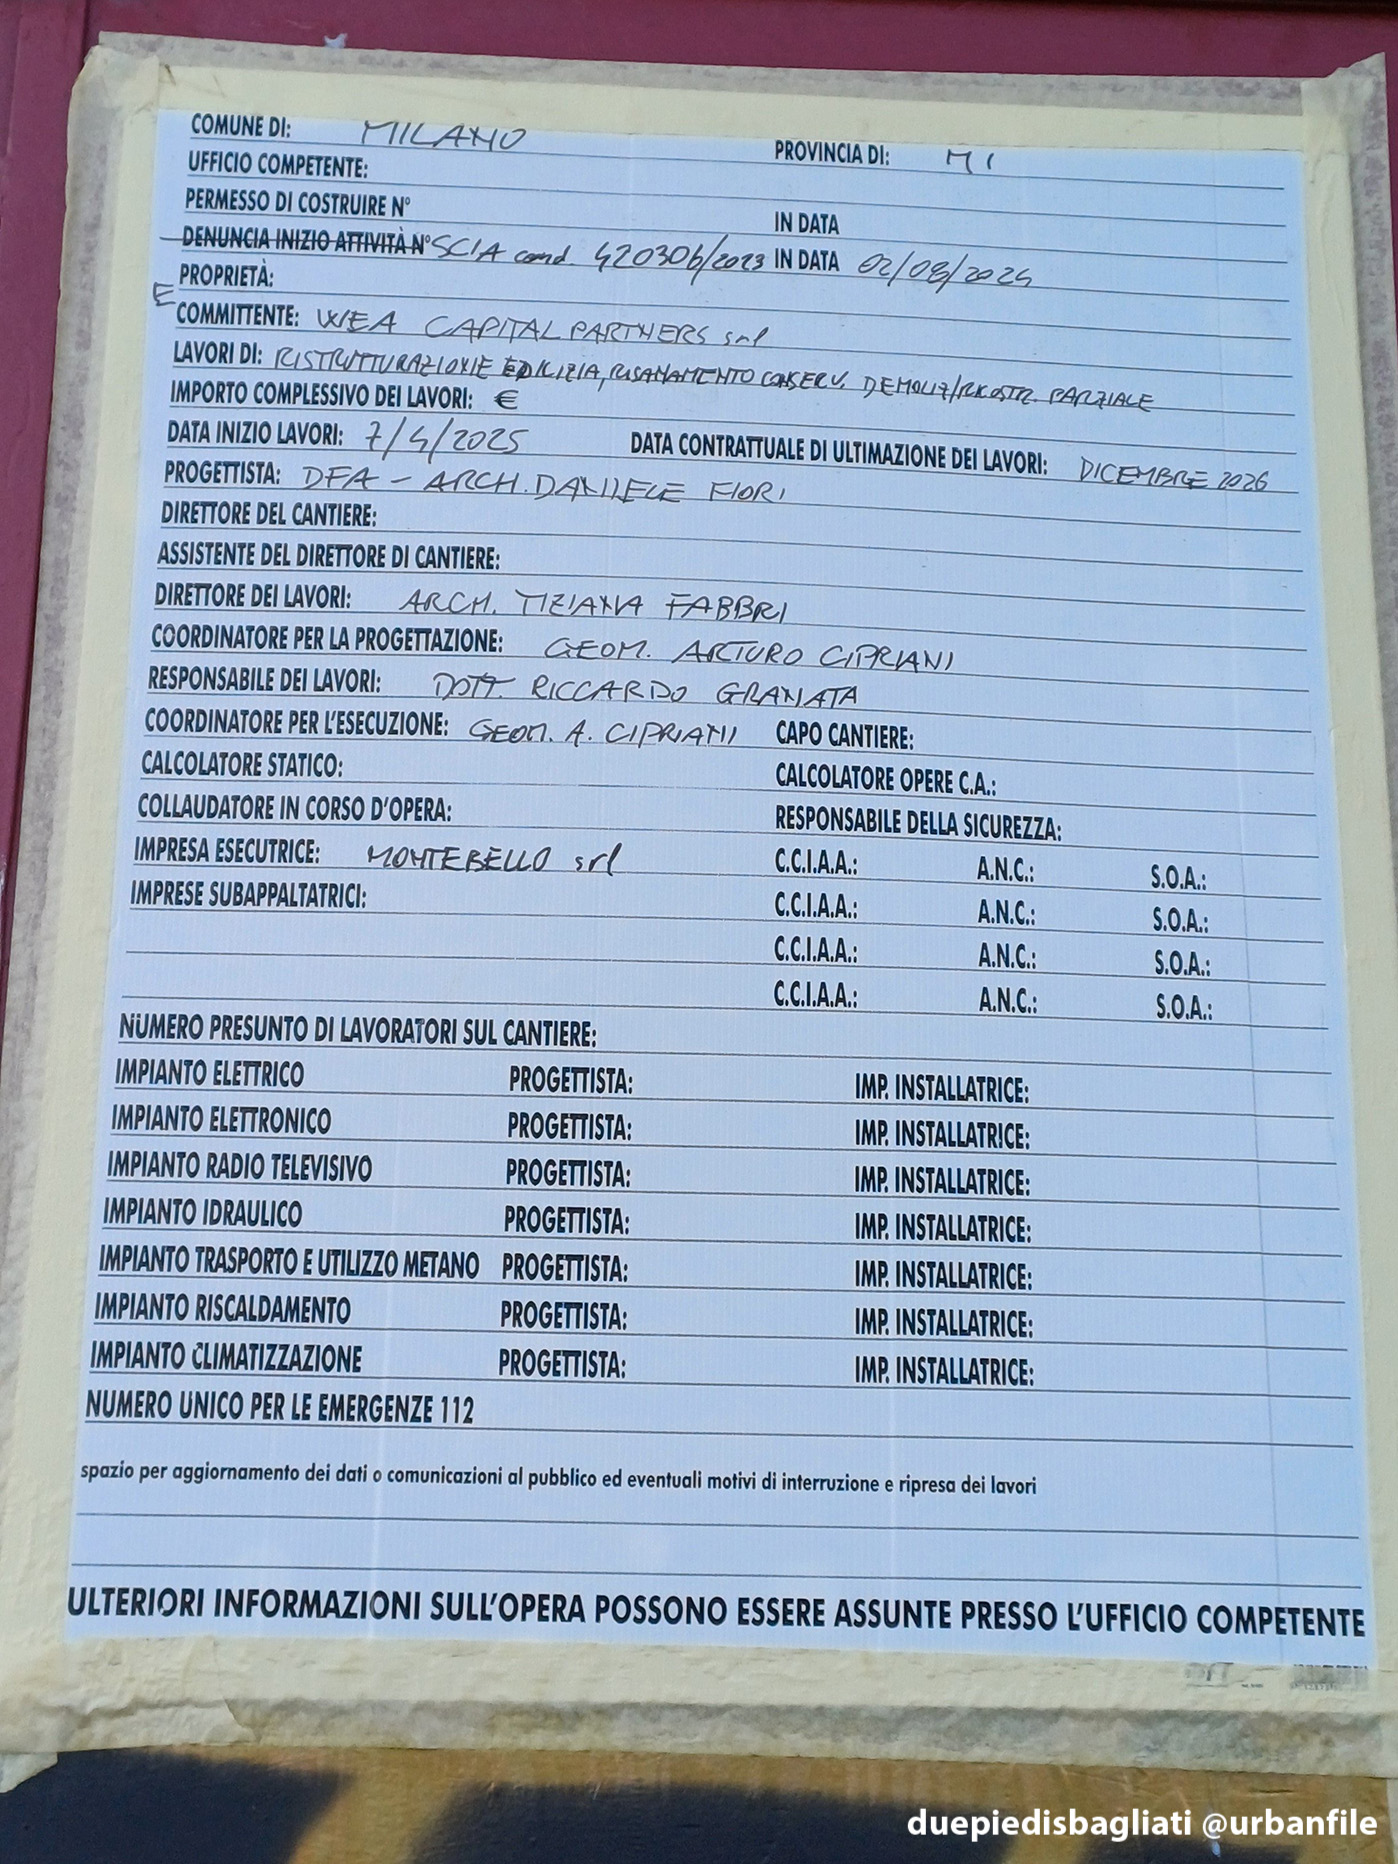 COMUNE DI: MILANO PROVINCIA DI: MI
UFFICIO COMPETENTE:
PERMESSO DI COSTRUIRE N° IN DATA
DENUNCIA INIZIO ATTIVITÀ N° SCIA cond. 420306/2023 IN DATA 02/08/2024
PROPRIETÀ:
E COMMITTENTE: WEA CAPITAL PARTNERS srl
LAVORI DI: RISTRUTTURAZIONE EDILIZIA, RISANAMENTO CONSERV. DEMOLIZ/RICOSTR. PARZIALE
IMPORTO COMPLESSIVO DEI LAVORI: €
DATA INIZIO LAVORI: 7/4/2025 DATA CONTRATTUALE DI ULTIMAZIONE DEI LAVORI: DICEMBRE 2026
PROGETTISTA: DFA - ARCH. DANIELE FIORI
DIRETTORE DEL CANTIERE:
ASSISTENTE DEL DIRETTORE DI CANTIERE:
DIRETTORE DEI LAVORI: ARCH. TIZIANA FABBRI
COORDINATORE PER LA PROGETTAZIONE: GEOM. ARTURO CIPRIANI
RESPONSABILE DEI LAVORI: DOTT. RICCARDO GRANATA
COORDINATORE PER L'ESECUZIONE: GEOM. A. CIPRIANI CAPO CANTIERE:
CALCOLATORE STATICO: CALCOLATORE OPERE C.A.:
COLLAUDATORE IN CORSO D'OPERA: RESPONSABILE DELLA SICUREZZA:
IMPRESA ESECUTRICE: MONTEBELLO srl C.C.I.A.A.: A.N.C.: S.O.A.:
IMPRESE SUBAPPALTATRICI: C.C.I.A.A.: A.N.C.: S.O.A.:
C.C.I.A.A.: A.N.C.: S.O.A.:
C.C.I.A.A.: A.N.C.: S.O.A.:
NUMERO PRESUNTO DI LAVORATORI SUL CANTIERE:
IMPIANTO ELETTRICO PROGETTISTA: IMP. INSTALLATRICE:
IMPIANTO ELETTRONICO PROGETTISTA: IMP. INSTALLATRICE:
IMPIANTO RADIO TELEVISIVO PROGETTISTA: IMP. INSTALLATRICE:
IMPIANTO IDRAULICO PROGETTISTA: IMP. INSTALLATRICE:
IMPIANTO TRASPORTO E UTILIZZO METANO PROGETTISTA: IMP. INSTALLATRICE:
IMPIANTO RISCALDAMENTO PROGETTISTA: IMP. INSTALLATRICE:
IMPIANTO CLIMATIZZAZIONE PROGETTISTA: IMP. INSTALLATRICE:
NUMERO UNICO PER LE EMERGENZE 112
spazio per aggiornamento dei dati o comunicazioni al pubblico ed eventuali motivi di interruzione e ripresa dei lavori
ULTERIORI INFORMAZIONI SULL'OPERA POSSONO ESSERE ASSUNTE PRESSO L'UFFICIO COMPETENTE
duepiedisbagliati @urbanfile